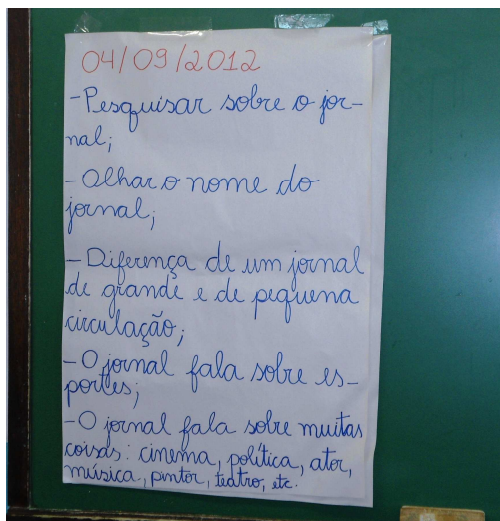 04/09/2012
-Pesquisar sobre o jor-
nal;
- Olhar o nome do
jornal;
- Diferença de um jornal
de grande e de pequena
circulação;
- O jornal fala sobre es-
portes;
- O jornal fala sobre muitas
coisas: cinema, política, ator,
música, pintor, teatro, etc.